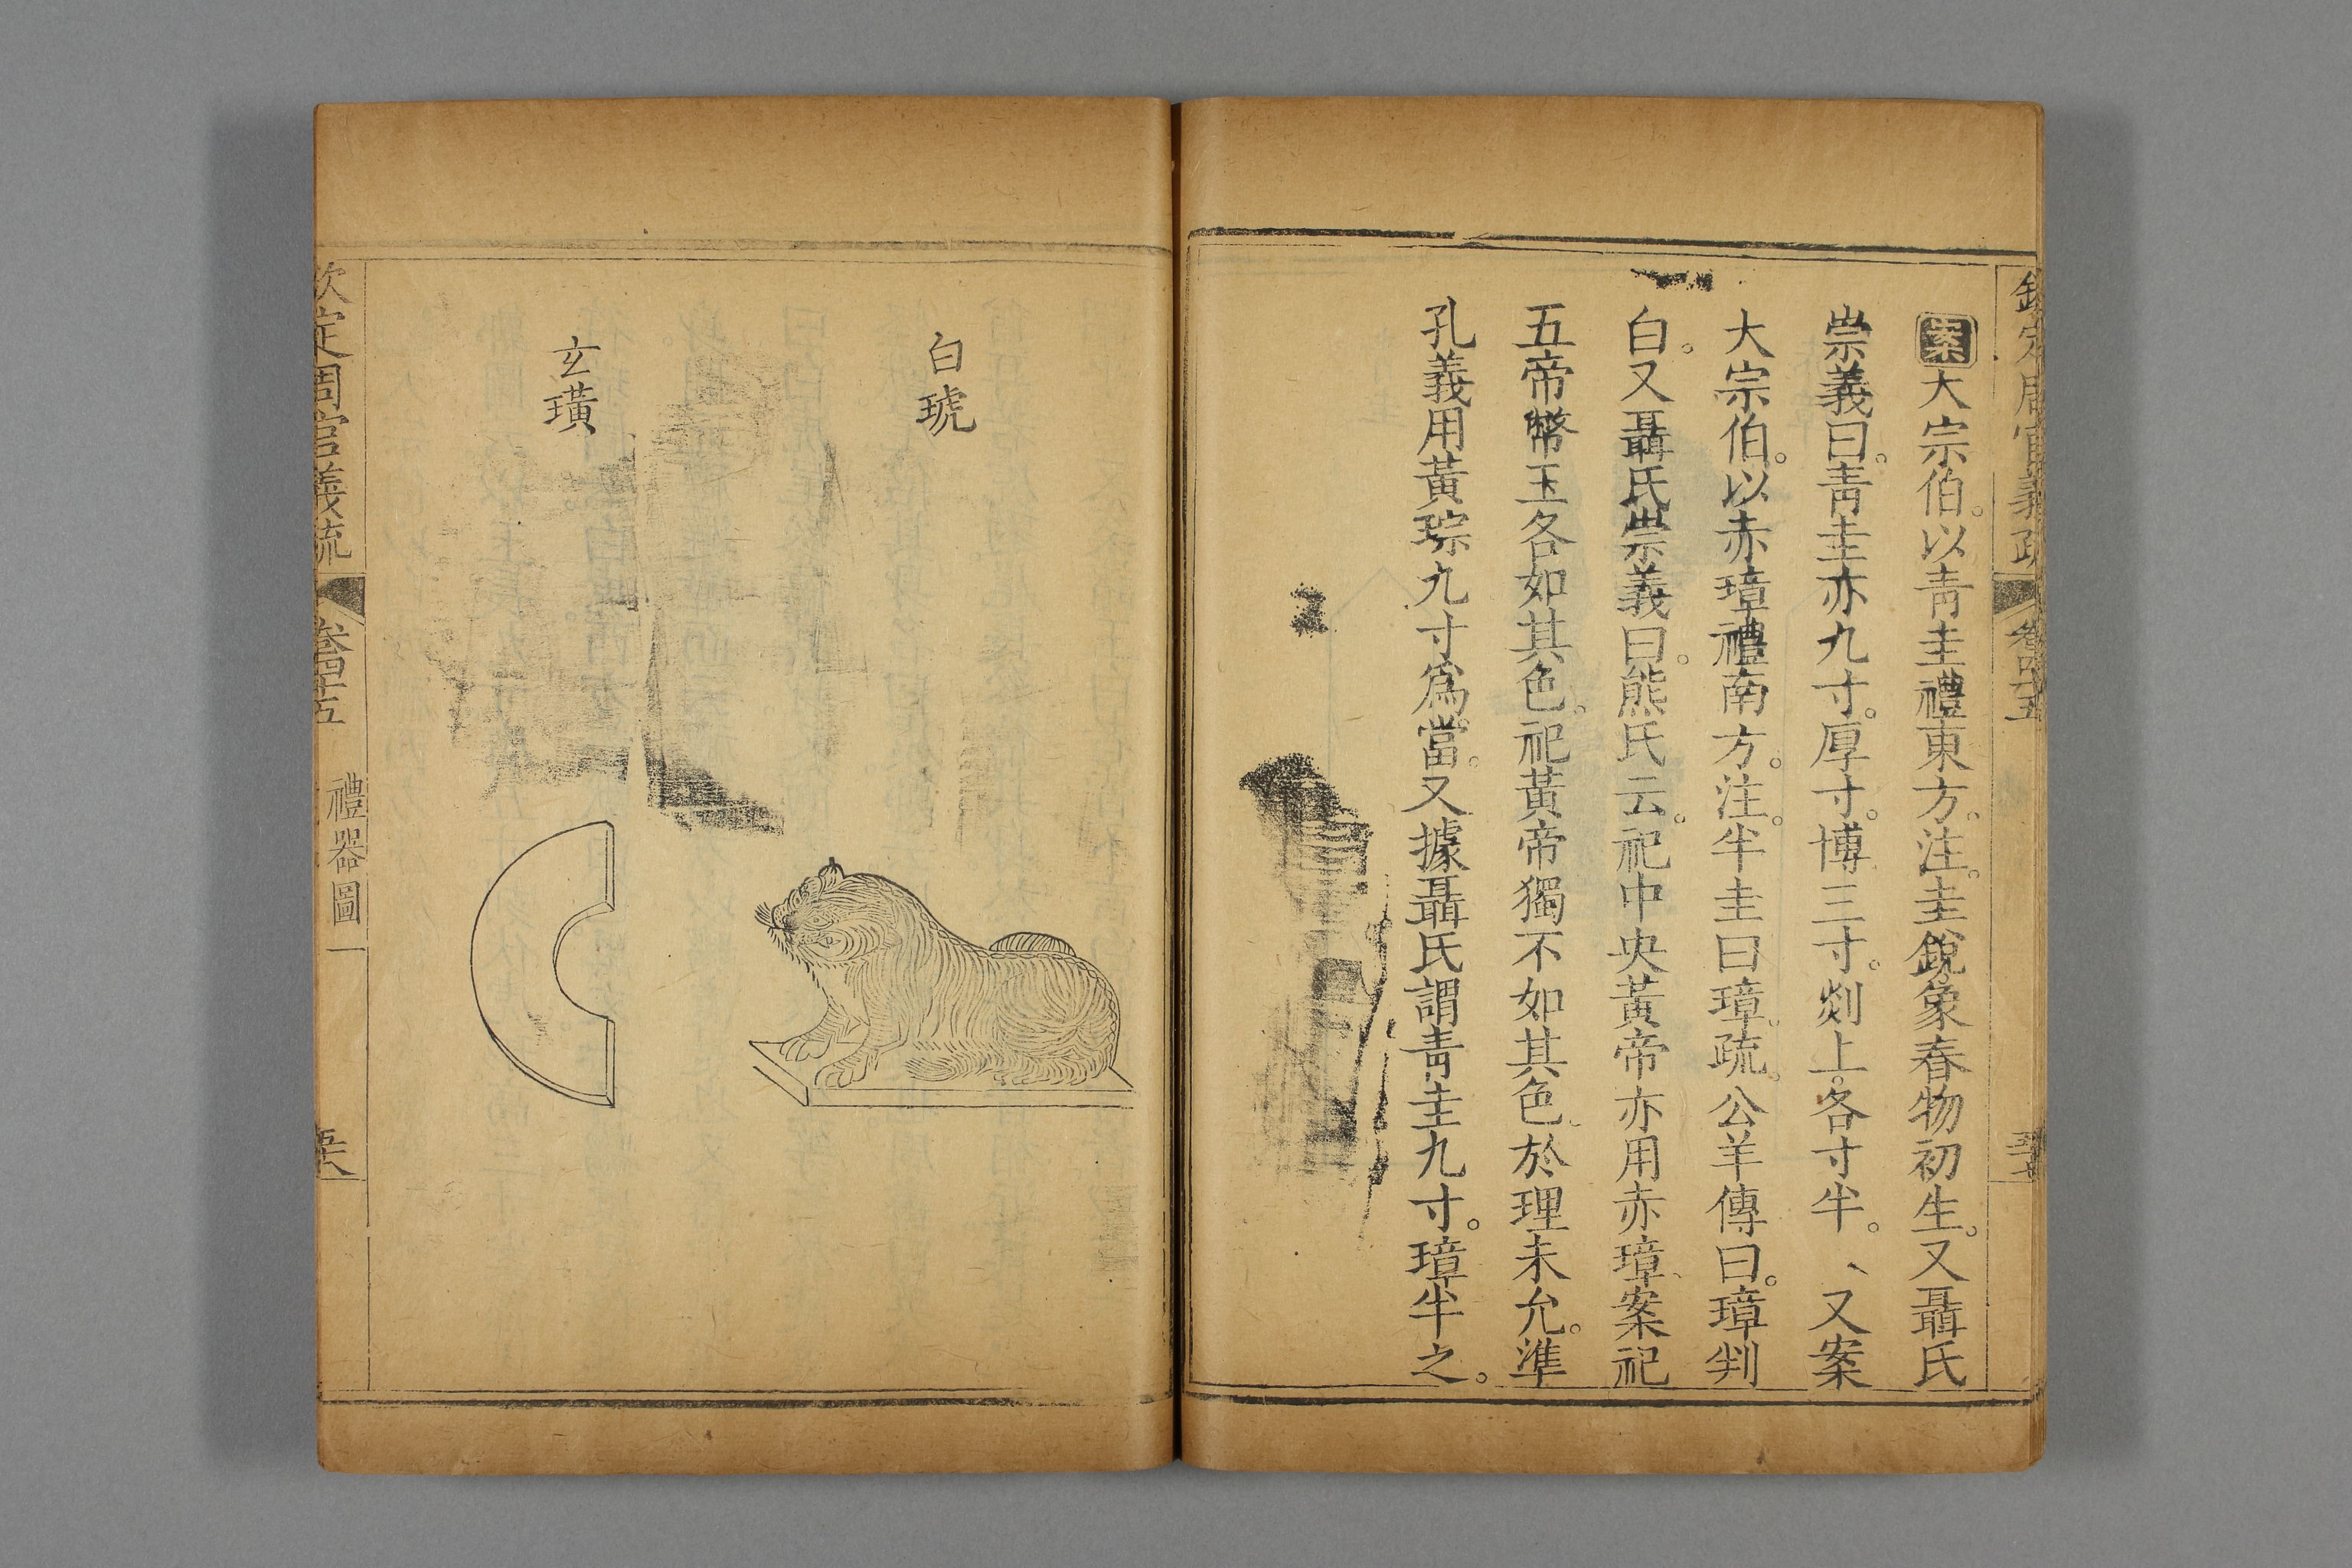 欽定周官義疏 卷四十五 三七
案大宗伯。以青圭禮東方。注。圭銳。象春物初生。又聶氏
崇義曰。青圭亦九寸。厚寸。博三寸。剡上。各寸半。、又案
大宗伯。以赤璋禮南方。注。半圭曰璋。疏。公羊傳曰。璋判
白。又聶氏崇義曰。熊氏云。祀中央黃帝亦用赤璋。案祀
五帝幣玉各如其色。祀黃帝獨不如其色。於理未允。準
孔義用黃琮九寸爲當。又據聶氏謂青圭九寸。璋半之。
白琥
玄璜
欽定周官義疏 卷四十五 禮器圖一